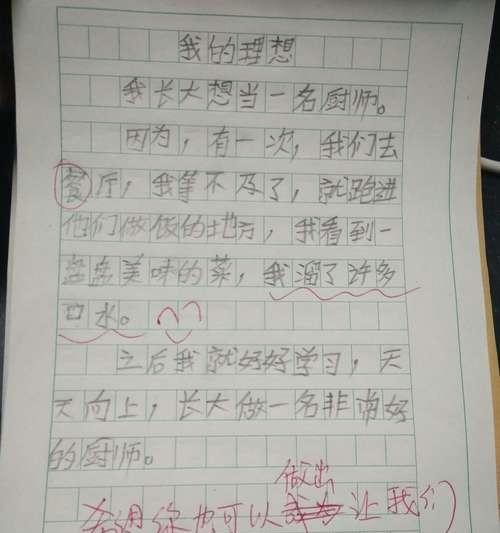 我的理想
我长大想当一名厨师。
因为，有一次，我们去
餐厅，我等不及了，就跑进
他们做饭的地方，我看到一
盘盘美味的菜，我溜了许多
口水。
之后我就好好学习，天
天向上，长大做一名非常好
的厨师。
做出
希望你也可以让我们